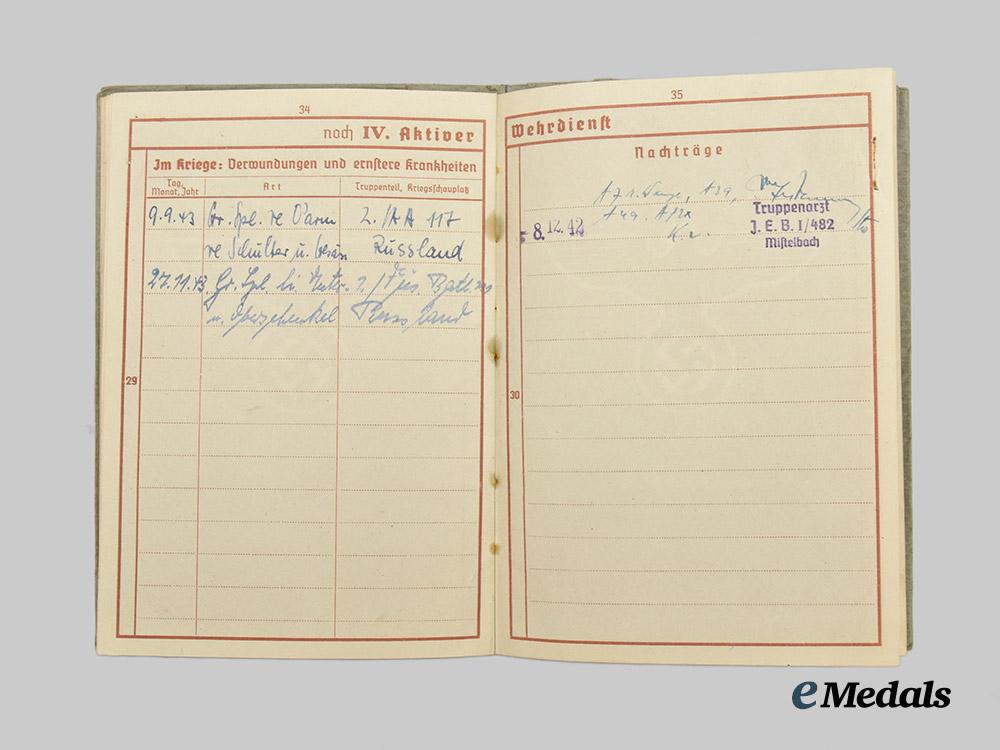 34
noch IV. Aktiver
Im Kriege: Verwundungen und ernstere Krankheiten
Tag, Monat, Jahr
Art
Truppenteil, Kriegsschauplatz
9.9.43 Gr. Spl. re O'arm 2./AA 117
re Schulter u. Russland
27.11.43 Gr. Spl. li. Unter-
u. Oberschenkel Russland
29
35
Wehrdienst
Nachträge
A 39,
- 8. 12. 42
Truppenarzt
J. E. B. I/482
Mistelbach
30
eMedals